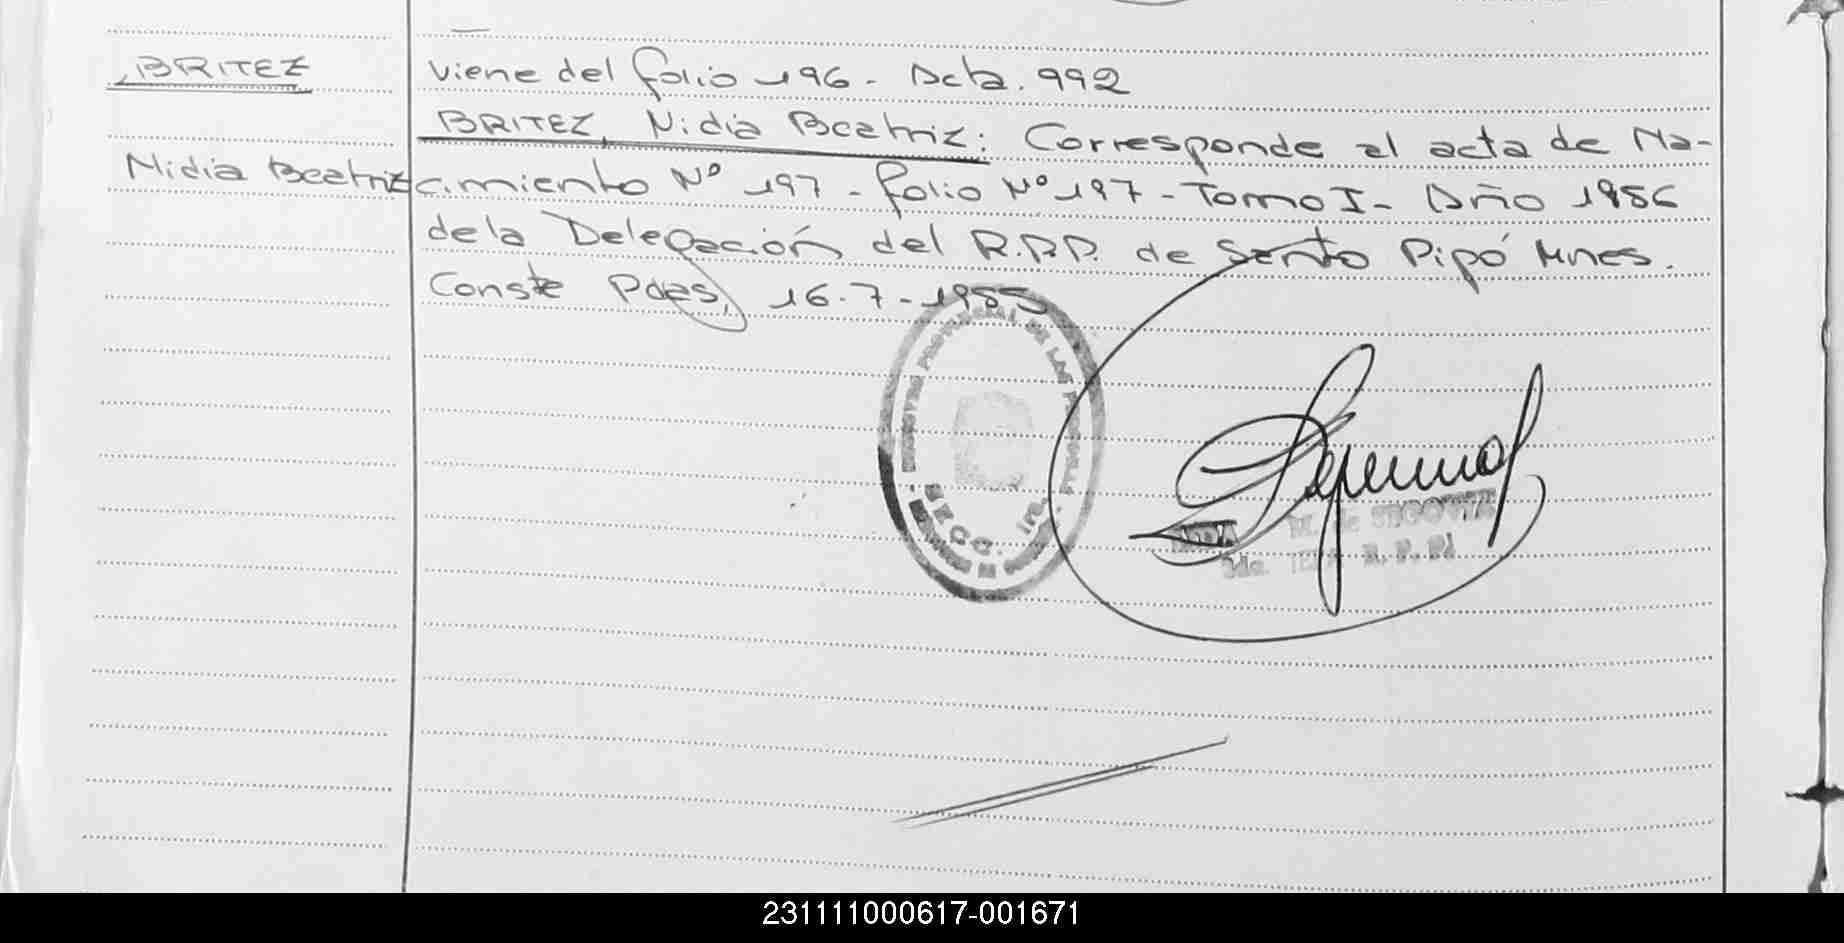 BRITEZ
Nidia Beatriz
Viene del folio 196 - Acta. 992
BRITEZ, Nidia Beatriz: Corresponde al acta de Na-
cimiento Nº 197 - folio Nº 197 - Tomo I - Año 1986
de la Delegación del R.P.P. de Santo Pipó Mnes.
Conste Pdas, 16-7-1985
PROVINCIAL DE LAS PERSONAS
SECC.
M. de SEGOVIA
R. P. P.
231111000617-001671